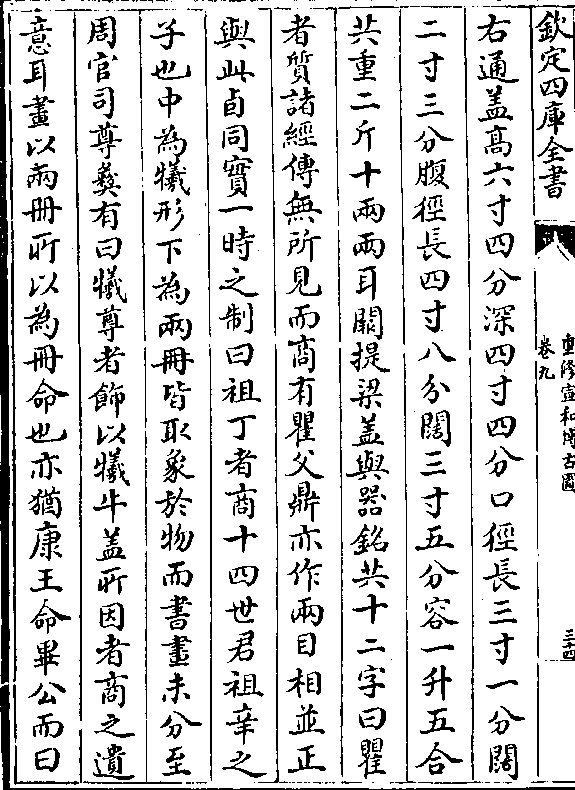 欽定四庫全書
重修宣和博古圖
卷九
三十四
右通盖髙六寸四分深四寸四分口徑長三寸一分闊
二寸三分腹徑長四寸八分闊三寸五分容一升五合
共重二斤十兩兩耳闕提梁盖與器銘共十二字曰瞿
者質諸經傳無所見而商有瞿父鼎亦作兩目相並正
與此卣同實一時之制曰祖丁者商十四世君祖辛之
子也中為犧形下為兩冊皆取象於物而書畫未分至
周官司尊彝有曰犧尊者飾以犧牛盖所因者商之遺
意耳畫以兩冊所以為冊命也亦猶康王命畢公而曰